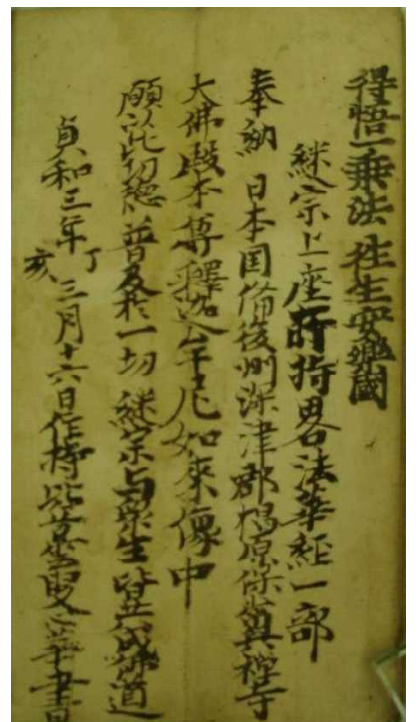 得悟一乗法 往生安樂國
継宗上座所持畧法華経一部
奉納 日本国備後州深津郡椙原保常興禅寺
大佛殿本尊釋迦牟尼如来像中
願以此功徳普及於一切 継宗与衆生皆共成佛道
貞和三年丁亥三月十六日住持比丘雲叟 書